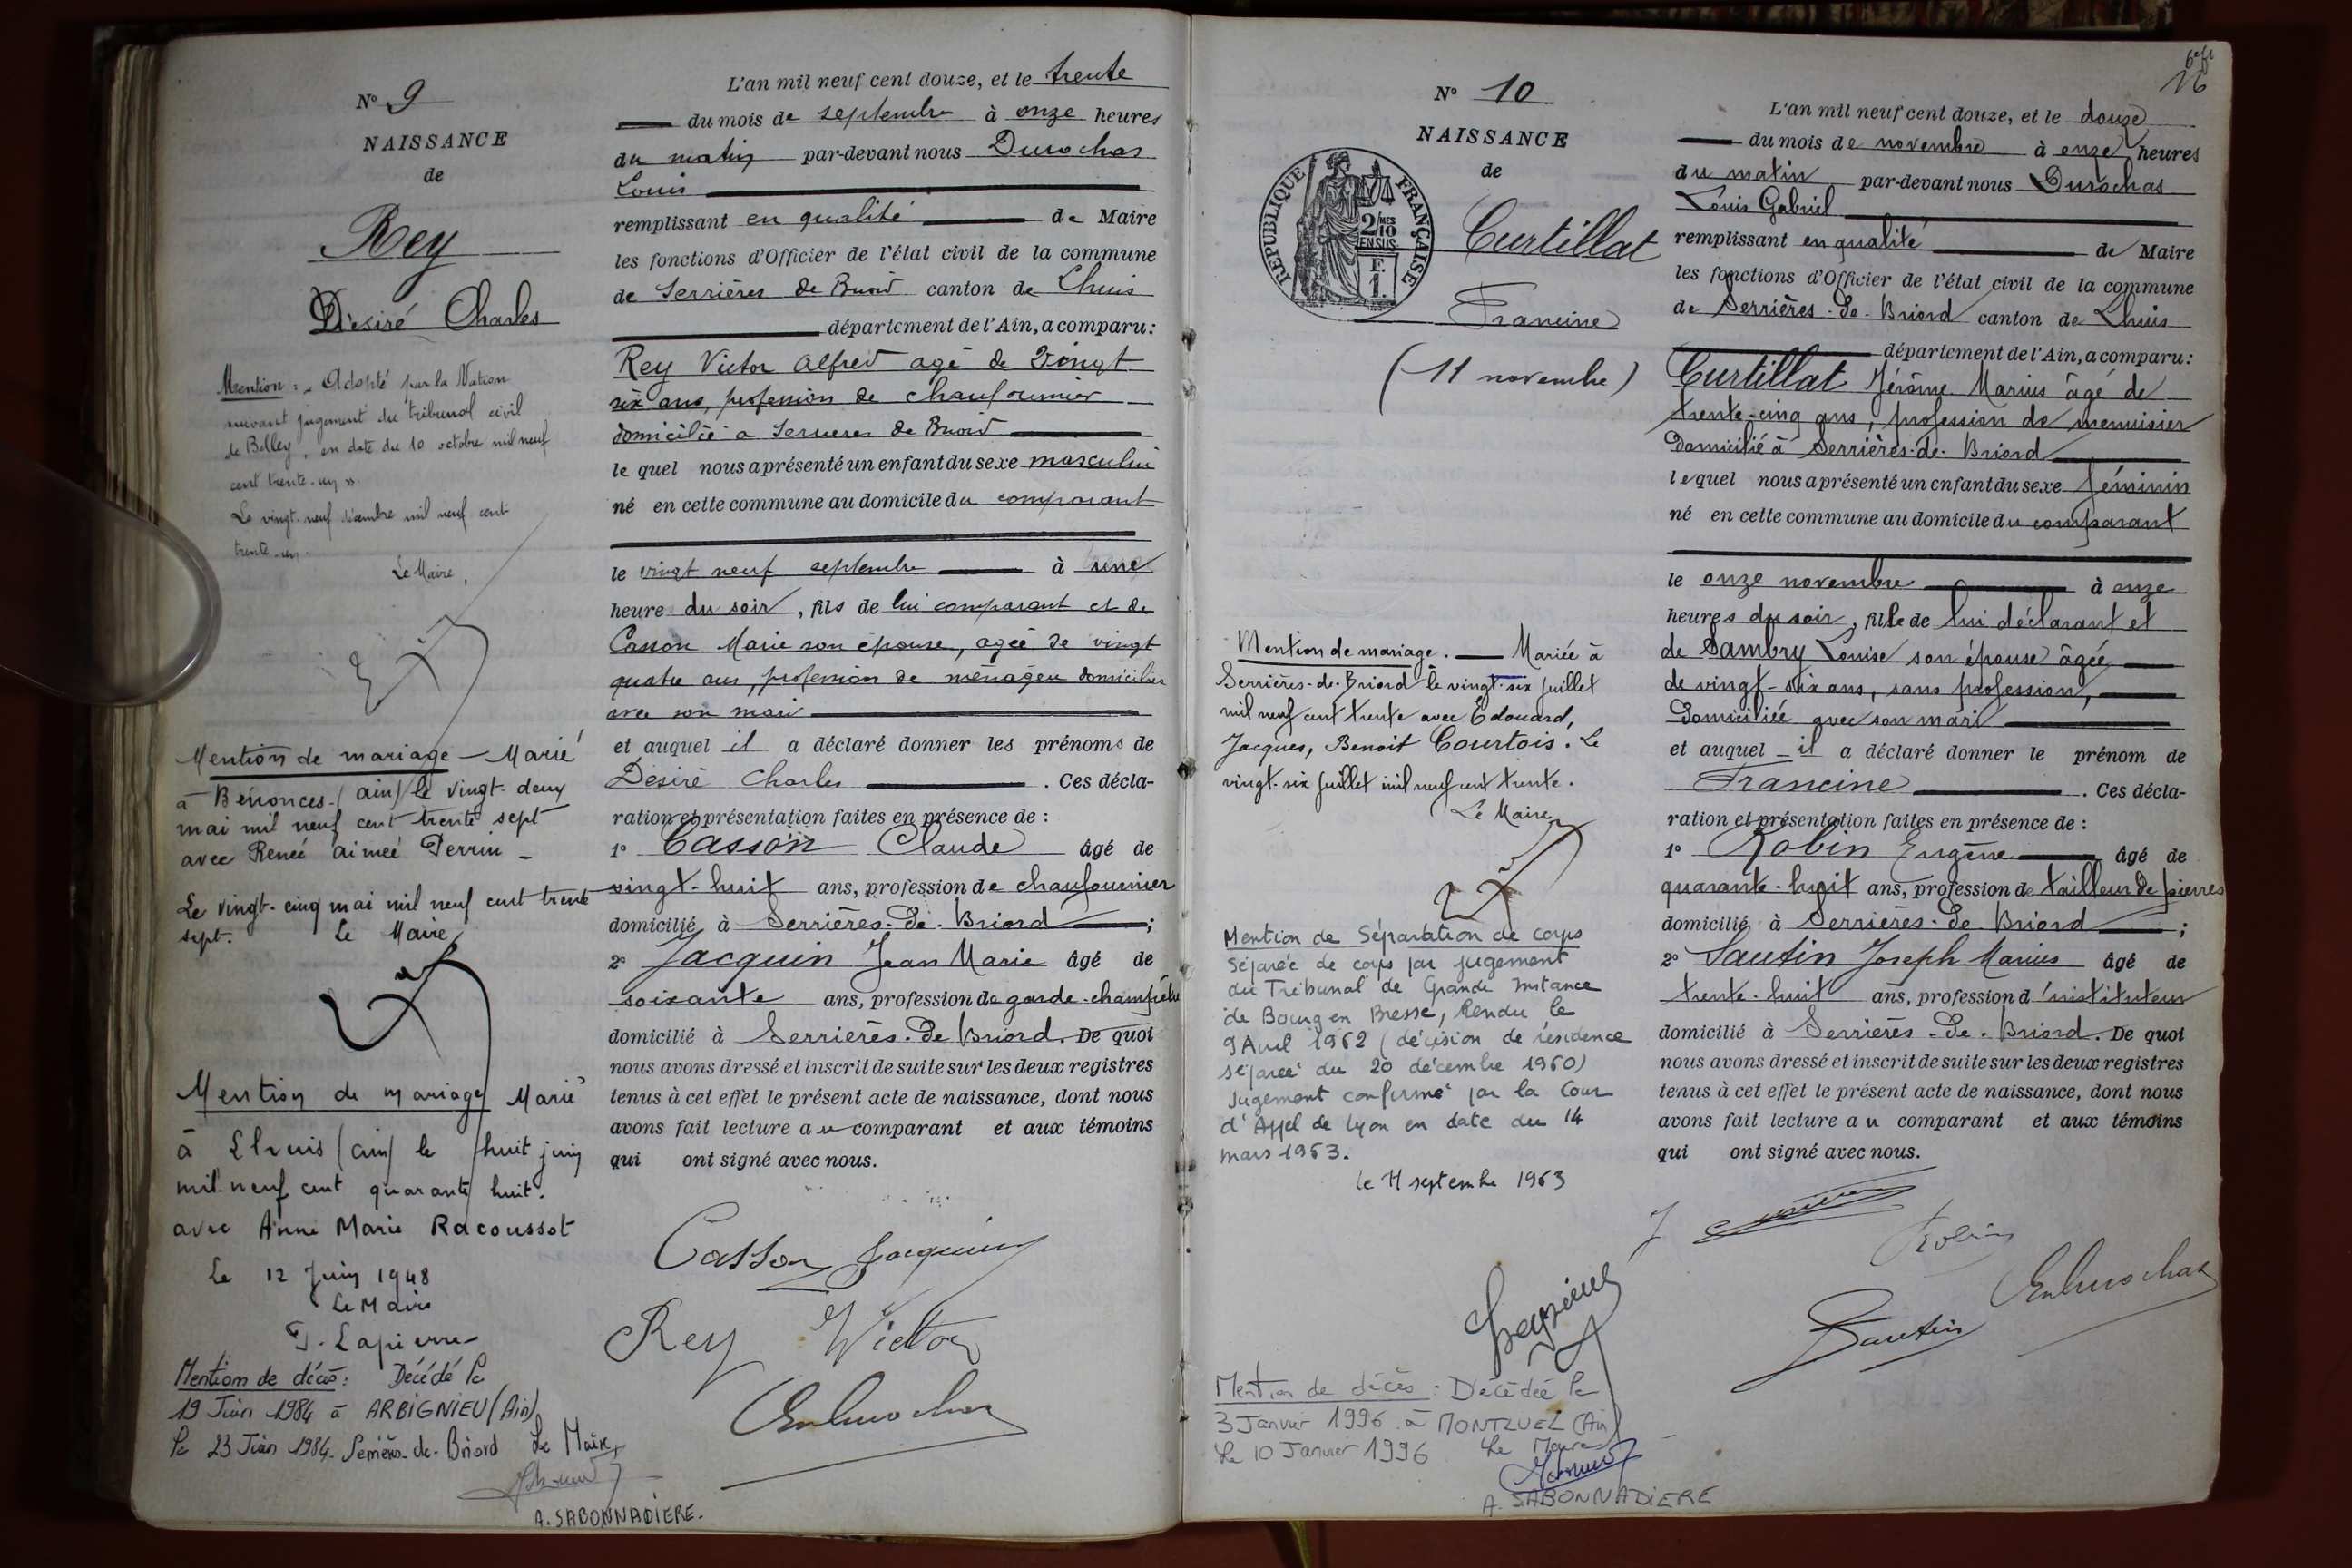 N° 9
NAISSANCE
de
Rey
Désiré Charles
Mention : - Adopté par la Nation
suivant jugement du tribunal civil
de Belley, en date du 10 octobre mil neuf
cent trente-un ».
Le vingt-neuf décembre mil neuf cent
trente-un.
Le Maire,
Mention de mariage - Marié
à Bénonces (ain) le vingt-deux
mai mil neuf cent trente sept
avec Renée aimée Perrin -
Le vingt-cinq mai mil neuf cent trente
sept. Le Maire
Mention de mariage Marié
à Lhuis (ain) le huit juin
mil neuf cent quarante huit.
avec Anne Marie Racoussot
Le 12 Juin 1948
Le Maire
P. Lapierre
Mention de décès : Décédé le
19 Juin 1984 à ARBIGNIEU (Ain)
le 23 Juin 1984. Serrières-de-Briord Le Maire
A. SABONNADIERE.
L'an mil neuf cent douze, et le trente
du mois de septembre à onze heures
du matin par-devant nous Durochas
Louis
remplissant en qualité de Maire
les fonctions d'Officier de l'état civil de la commune
de Serrières de Briord canton de Lhuis
département de l'Ain, a comparu :
Rey Victor Alfred agé de Vingt
six ans, profession de chaufournier
domicilié a Serrieres de Briord
le quel nous a présenté un enfant du sexe masculin
né en cette commune au domicile du comparant
le vingt neuf septembre à une
heure du soir, fils de lui comparant et de
Casson Marie son épouse, agée de vingt
quatre ans, profession de ménagère domiciliée
avec son mari
et auquel il a déclaré donner les prénoms de
Désiré Charles . Ces décla-
ration et présentation faites en présence de :
1° Casson Claude âgé de
vingt-huit ans, profession de chaufournier
domicilié à Serrières-de-Briord ;
2° Jacquin Jean Marie âgé de
soixante ans, profession de garde-champêtre
domicilié à Serrières-de-Briord. De quoi
nous avons dressé et inscrit de suite sur les deux registres
tenus à cet effet le présent acte de naissance, dont nous
avons fait lecture au comparant et aux témoins
qui ont signé avec nous.
Casson Jacquin
Rey Victor
Durochas
16
N° 10
NAISSANCE
de
REPUBLIQUE FRANÇAISE
2/10 MES
EN SUS
F.
1.
Curtillat
Francine
(11 novembre)
Mention de mariage. Mariée à
Serrières-de-Briord le vingt-six juillet
mil neuf cent trente avec Edouard,
Jacques, Benoit Courtois. Le
vingt-six juillet mil neuf cent trente.
Le Maire
Mention de Séparation de corps
Séparée de corps par jugement
du Tribunal de Grande Instance
de Bourg en Bresse, rendu le
9 Avril 1962 (décision de résidence
séparée du 20 décembre 1960)
Jugement confirmé par la Cour
d'Appel de Lyon en date du 14
mars 1963.
le 11 septembre 1963
Mention de décès : Décédée le
3 Janvier 1996 à MONTLUEL (Ain)
Le 10 Janvier 1996 Le Maire
A. SABONNADIERE
L'an mil neuf cent douze, et le douze
du mois de novembre à onze heures
du matin par-devant nous Durochas
Louis Gabriel
remplissant en qualité de Maire
les fonctions d'Officier de l'état civil de la commune
de Serrières-de-Briord canton de Lhuis
département de l'Ain, a comparu :
Curtillat Jérôme Marius âgé de
trente-cinq ans, profession de menuisier
domicilié à Serrières-de-Briord
lequel nous a présenté un enfant du sexe féminin
né en cette commune au domicile du comparant
le onze novembre à onze
heures du soir, fille de lui déclarant et
de Sambry Louise son épouse âgée
de vingt-six ans, sans profession,
domiciliée avec son mari
et auquel il a déclaré donner le prénom de
Francine . Ces décla-
ration et présentation faites en présence de :
1° Robin Eugène âgé de
quarante-huit ans, profession de tailleur de pierres
domicilié à Serrières-de-Briord ;
2° Sautin Joseph Marius âgé de
trente-huit ans, profession d'instituteur
domicilié à Serrières-de-Briord. De quoi
nous avons dressé et inscrit de suite sur les deux registres
tenus à cet effet le présent acte de naissance, dont nous
avons fait lecture au comparant et aux témoins
qui ont signé avec nous.
Robin
Durochas
Sautin